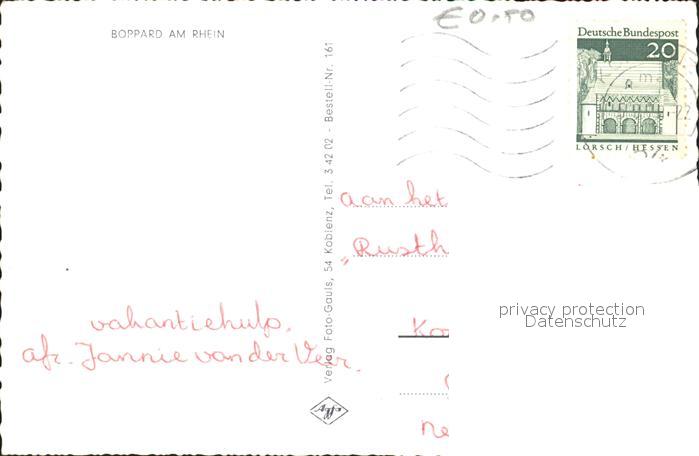 € 0.50
BOPPARD AM RHEIN
Deutsche Bundespost
20
LORSCH/HESSEN
Verlag Foto-Gauls, 54 Koblenz, Tel. 3 42 02 - Bestell-Nr. 161
aan het
„Rusth
privacy protection
Datenschutz
vakantiehulp.
afz. Jannie van der Veer.
Ko
Ne